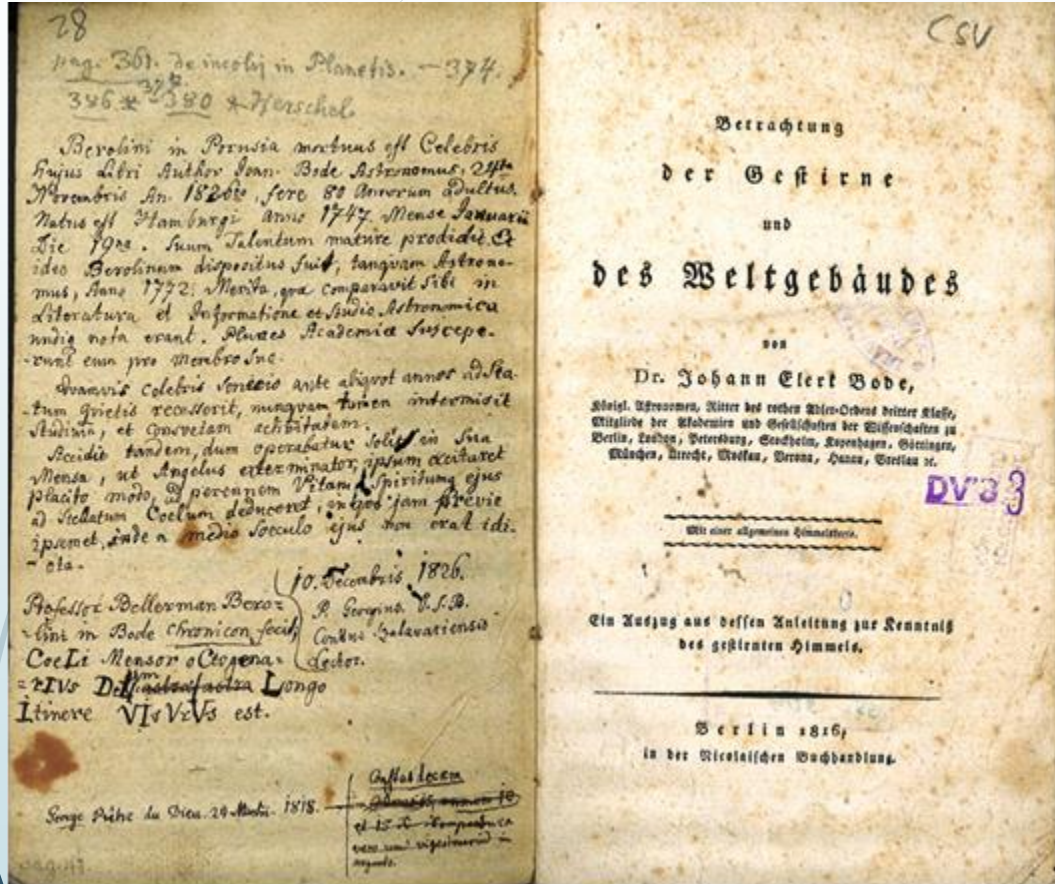 28
pag. 361. de incolis in Planetis. — 374.
386 * 378 - 380 * Herschel
Berolini in Porusia mortuus est Celebris
hujus Libri Author Joan. Bode Astronomus, 24ta
Novembris An. 1826to, fere 80 Annorum adultus.
Natus est Hamburgi anno 1747 Mense Januarii
Die 19na. Suum Talentum mature prodidit. Et
ideo Berolinum dispositus fuit, tanquam Astrono-
mus, Anno 1772. Merita, quæ comparavit sibi in
Literatura et Informatione et studio Astronomica
undiq nota erant. Plures Academiæ suscepe-
-runt eum pro membro suo.
Quamvis celebris senecio ante aliquot annos ad sta-
-tum quietis recesserit, nunquam tamen intermisit
studium, et consvetam activitatem.
Accidit tandem, dum operabatur solus in sua
Mensa, ut Angelus exterminator, ipsum excitaret
placito modo, ad perennem Vitam, Spiritumq ejus
ad stellatum Coelum deduceret, in quo jam prævie
ipsemet, inde a medio sæculo ejus non erat idi-
-ota.
Professor Bellerman Bero=
-lini in Bode Chronicon fecit,
CoeLi Mensor oCtogena=
=rIVs Longo
Itinere VIsVrVs est.
10. Decembris 1826.
P. Georgius
Lector.
1818.
pag. 47
CSV
Betrachtung
der Gestirne
und
des Weltgebäudes
von
Dr. Johann Elert Bode,
Königl. Astronomen, Ritter des rothen Adler-Ordens dritter Klasse,
Mitgliede der Akademien und Gesellschaften der Wissenschaften zu
Berlin, London, Petersburg, Stockholm, Kopenhagen, Göttingen,
München, Utrecht, Moskau, Verona, Hanau, Breslau ꝛc.
DV'3 3
Mit einer allgemeinen Himmelskarte.
Ein Auszug aus dessen Anleitung zur Kenntniß
des gestirnten Himmels.
Berlin 1816,
in der Nicolaischen Buchhandlung.